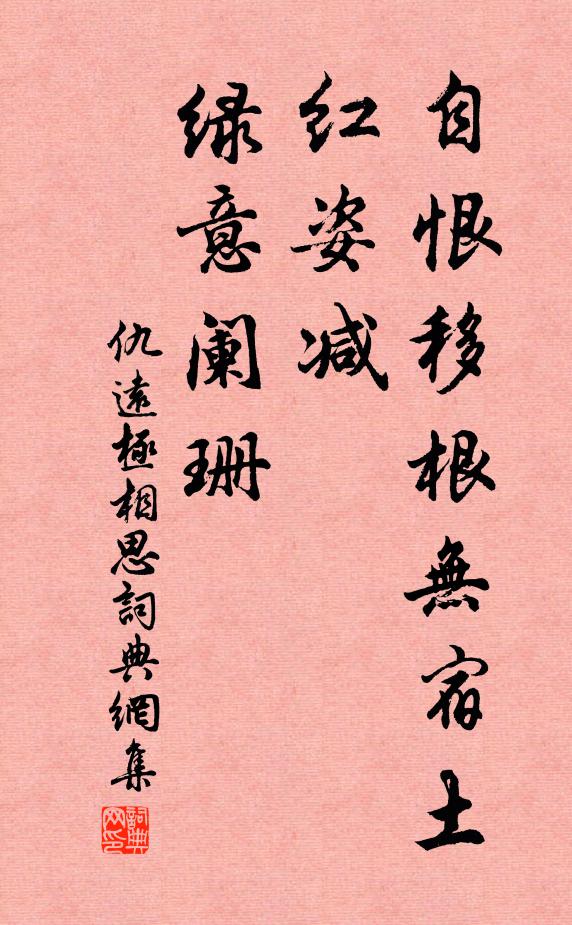 自恨移根無宿土
红姿减
绿意阑珊
仇遠極相思詞典網集
詞典网印